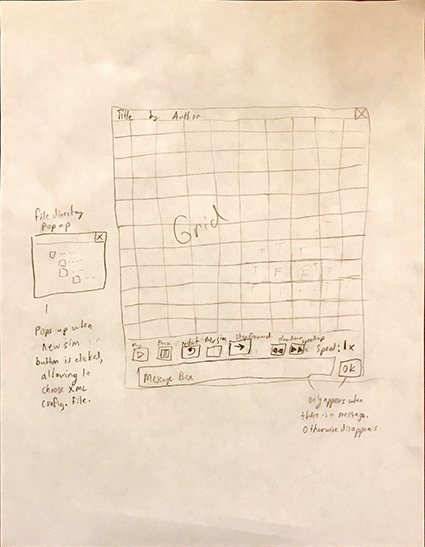 Title by Author
X
Grid
T T T
T F F T
file directory
pop up
X
Pops up when
new sim
button is clicked,
allowing to
choose XML
config. file.
Play Pause restart New sim Step forward slow down speed up
Speed: 1x
Message Box
OK
only appears when
there is a message.
Otherwise disappears